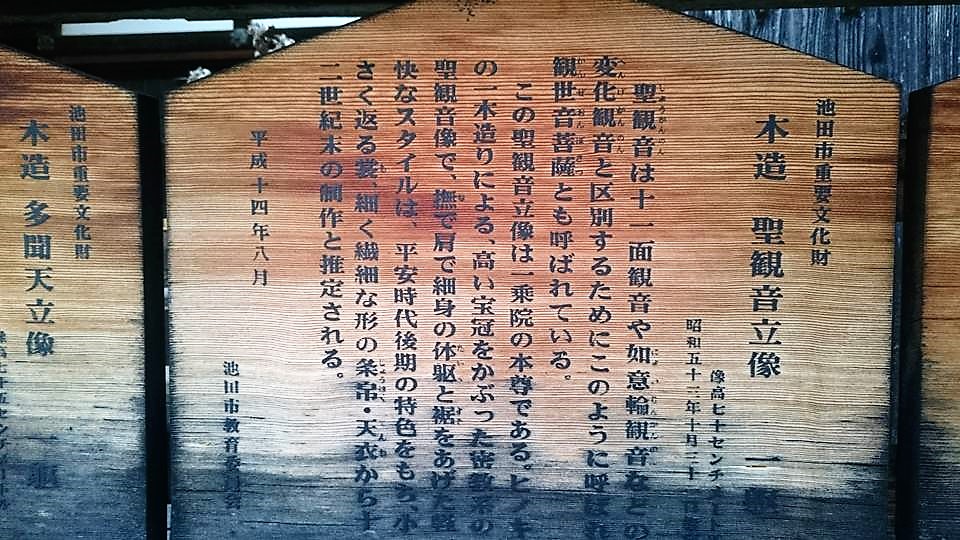 池田市重要文化財
木造 聖観音立像 一
像高七十センチ
昭和五十二年十月三十
聖観音は十一面観音や如意輪観音などの
変化観音と区別するためにこのように呼ばれ
観世音菩薩とも呼ばれている。
この聖観音立像は一乗院の本尊である。ヒノキ
の一木造りによる、高い宝冠をかぶった密教系の
聖観音像で、撫で肩で細身の体躯と裾をあげた軽
快なスタイルは、平安時代後期の特色をもつ。小
さく返る裳、細く繊細な形の条帛・天衣から十
二世紀末の制作と推定される。
平成十四年八月
池田市教育委員会
池田市重要文化財
木造 多聞天立像